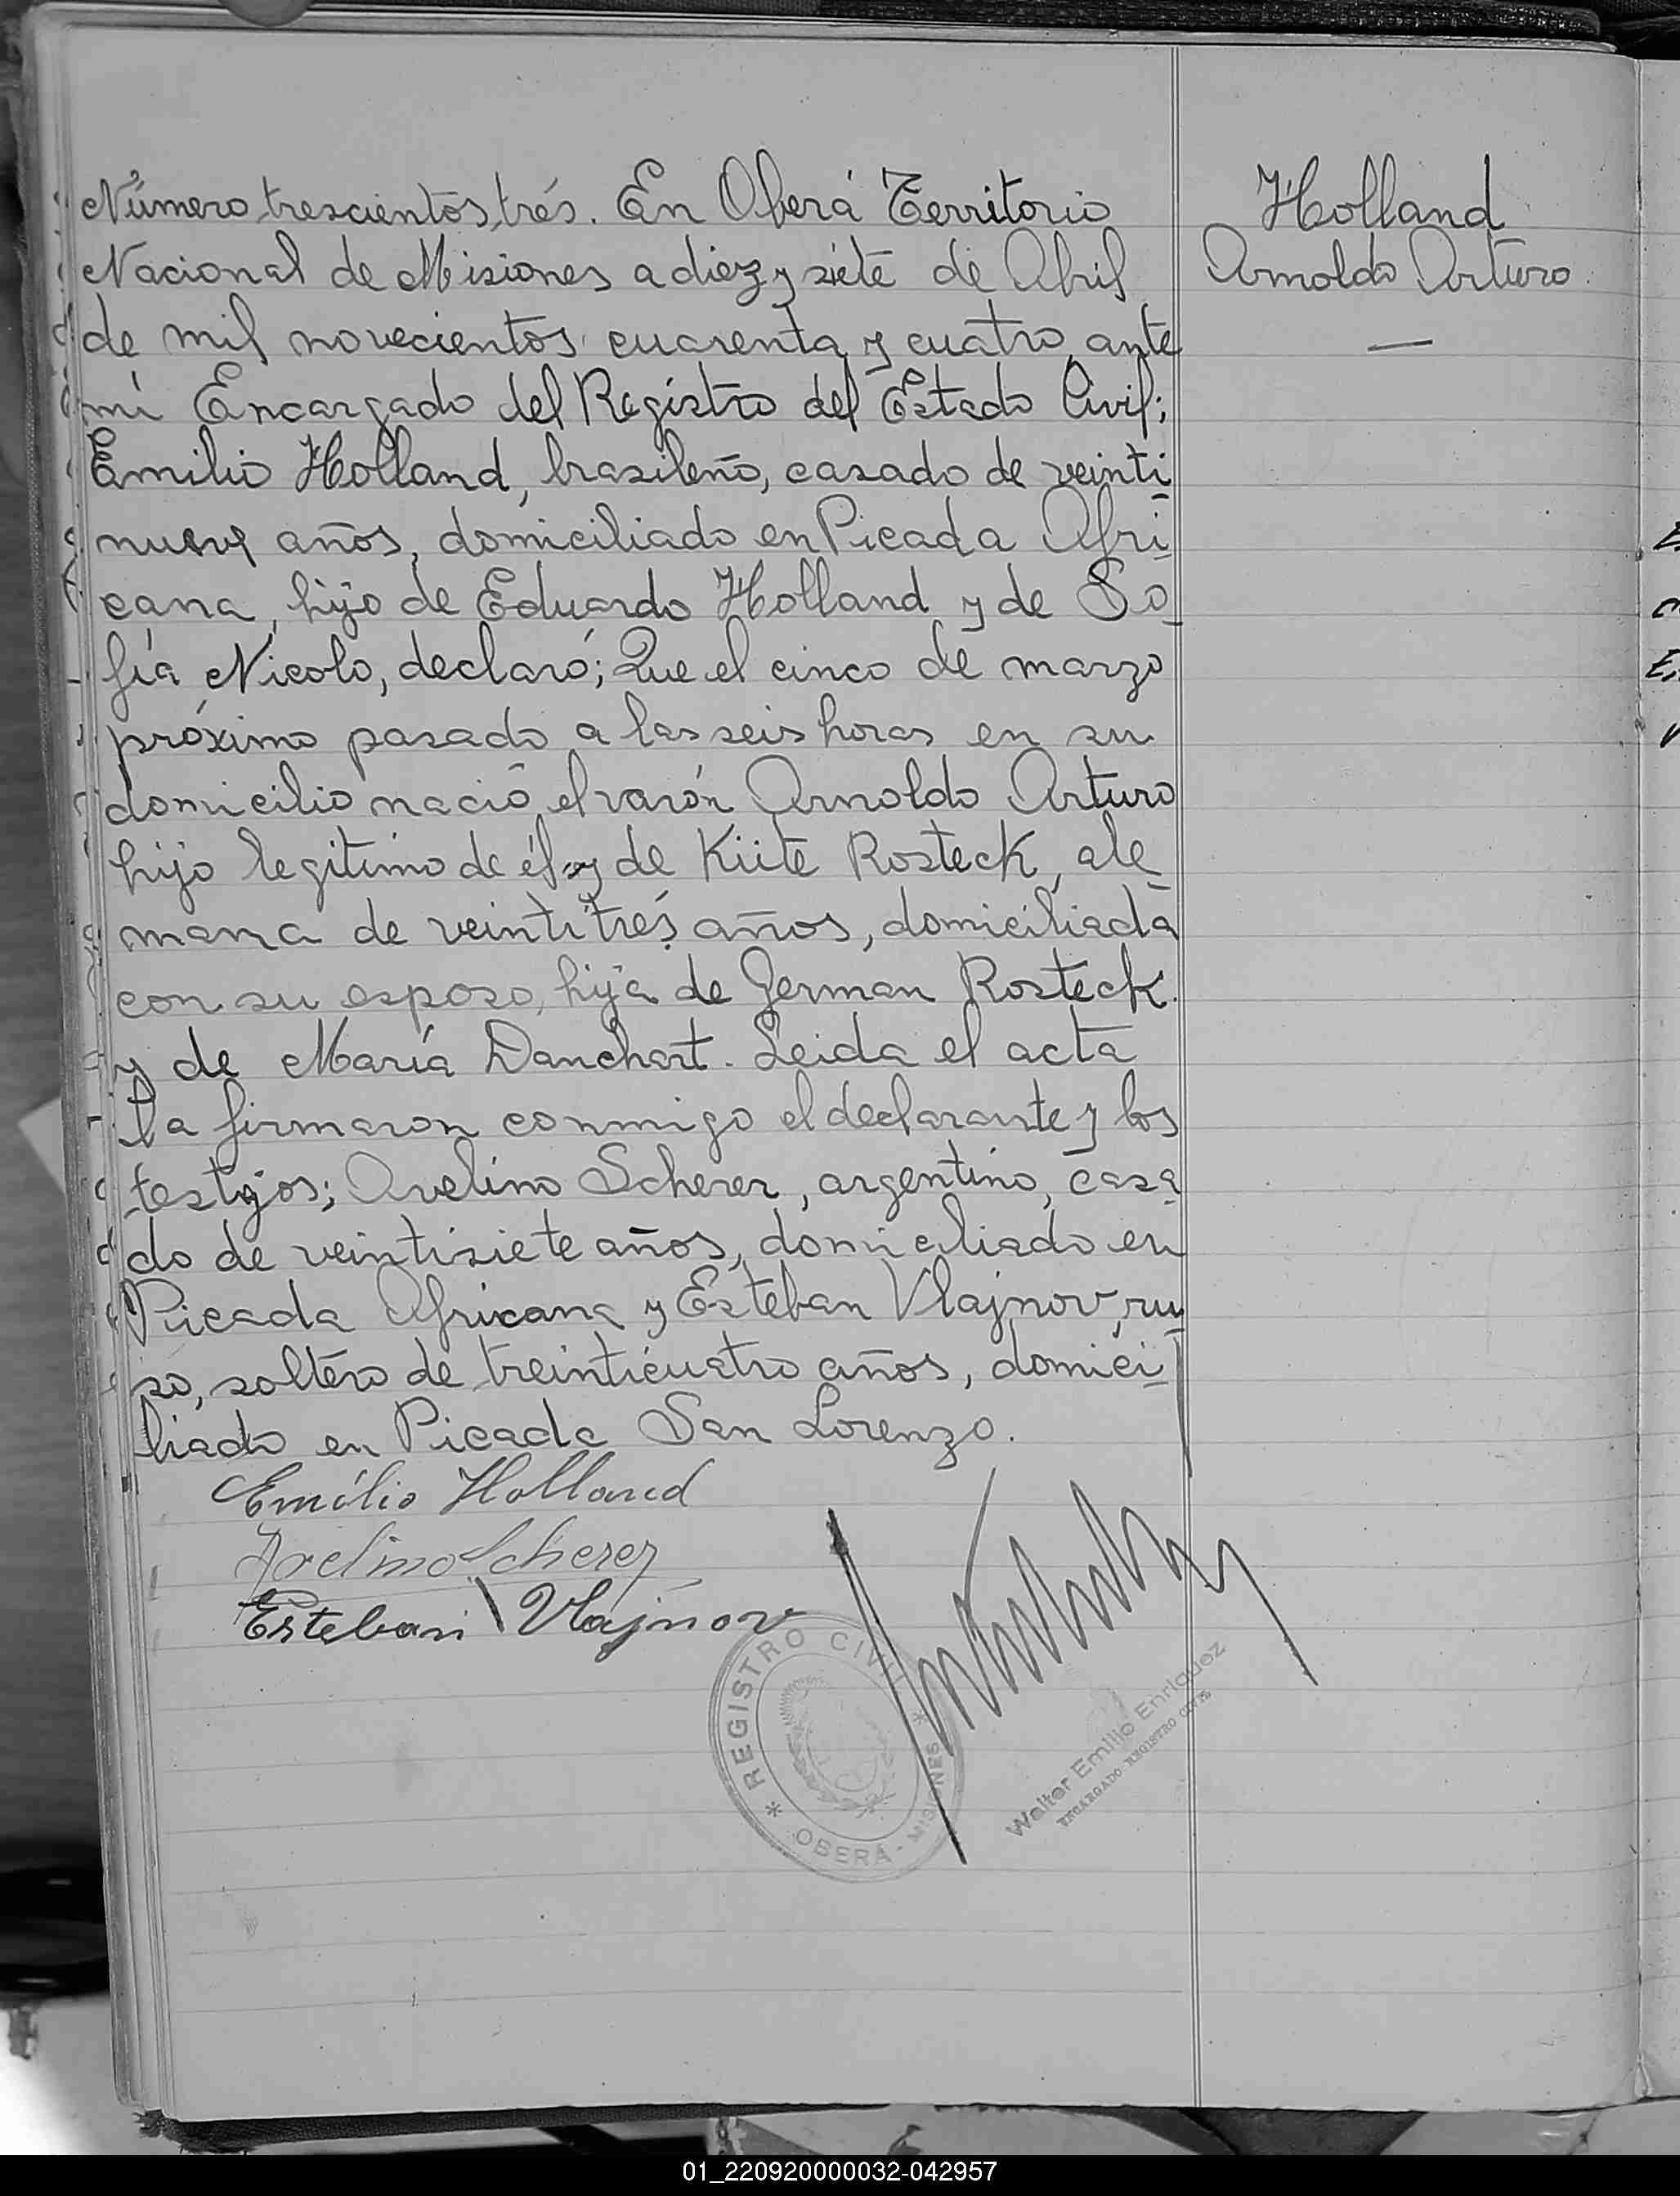 Número trescientos trés. En Oberá Territorio
Nacional de Misiones a diez y siete de Abril
de mil novecientos cuarenta y cuatro, ante
mi Encargado del Registro del Estado Civil;
Emilio Holland, brasileño, casado de veinti
nueve años, domiciliado en Picada Afri
cana, hijo de Eduardo Holland y de So
fía Nicolo, declaró; Que el cinco de marzo
próximo pasado a las seis horas en su
domicilio nació el varón Arnoldo Arturo
hijo legítimo de él y de Küte Rosteck, ale
mana de veintitrés años, domiciliada
con su esposo, hija de German Rosteck
y de María Danchert. Leida el acta
la firmaron conmigo el declarante y los
testigos; Avelino Scherer, argentino, casa
do de veintisiete años, domiciliado en
Picada Africana y Esteban Vlajnov, ru
so, soltero de treinticuatro años, domici
liado en Picada San Lorenzo.
Emilio Holland
Avelino Scherer
Esteban Vlajnov
Holland
Arnoldo Arturo.
* REGISTRO CIVIL *
OBERÁ - MISIONES
Walter Emilio Enriquez
ENCARGADO REGISTRO CIVIL
01_220920000032-042957